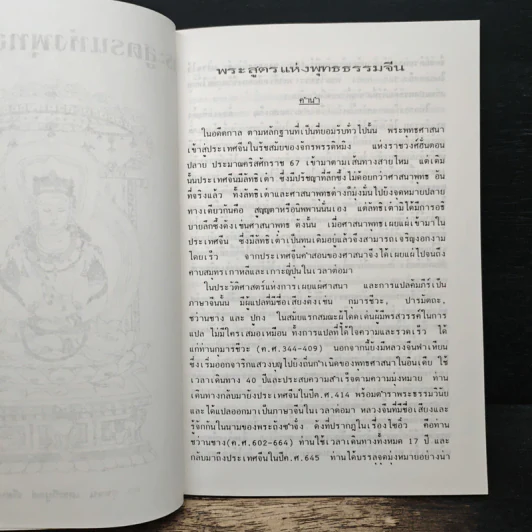 พระสูตรแห่งพุทธธรรมจีน
คำนำ
ในอดีตกาล ตามหลักฐานที่เป็นที่ยอมรับทั่วไปนั้น พระพุทธศาสนา
เข้าสู่ประเทศจีนในรัชสมัยของจักรพรรดิหมิง แห่งราชวงศ์ฮั่นตอน
ปลาย ประมาณคริสต์ศักราช 67 เข้ามาตามเส้นทางสายไหม แต่เดิม
นั้นประเทศจีนมีลัทธิเต๋า ซึ่งมีปรัชญาที่ลึกซึ้งไม่ด้อยกว่าศาสนาพุทธ อัน
ที่จริงแล้ว ทั้งลัทธิเต๋าและศาสนาพุทธต่างก็มุ่งมั่นไปยังจุดหมายปลาย
ทางเดียวกันคือ สูญญตาหรือนิพพานนั่นเอง แต่ลัทธิเต๋ามิได้มีการอธิ
บายลึกซึ้งดังเช่นศาสนาพุทธ ดังนั้น เมื่อศาสนาพุทธเผยแผ่เข้ามาใน
ประเทศจีน ซึ่งมีลัทธิเต๋าเป็นทุนเดิมอยู่แล้วจึงสามารถเจริญงอกงาม
โดยเร็ว จากประเทศจีนคำสอนของศาสนาจึงได้เผยแผ่ไปจนถึง
คาบสมุทรเกาหลีและเกาะญี่ปุ่นในเวลาต่อมา
ในประวัติศาสตร์แห่งการเผยแผ่ศาสนา และการแปลคัมภีร์เป็น
ภาษาจีนนั้น มีผู้แปลที่มีชื่อเสียงดังเช่น กุมารชีวะ, ปารมัตถะ,
ชว่านซาง และ ปูกง ในสมัยแรกสมณะผู้โดดเด่นผู้มีพรสวรรค์ในการ
แปล ไม่มีใครเสมอเหมือน ทั้งการแปลที่ได้ใจความและรวดเร็ว ได้
แก่ท่านกุมารชีวะ (ค.ศ.344-409) นอกจากนี้ยังมีหลวงจีนฟาเหียน
ซึ่งเริ่มออกจาริกแสวงบุญไปยังถิ่นกำเนิดของพุทธศาสนาในอินเดีย ใช้
เวลาเดินทาง 40 ปีและประสบความสำเร็จตามความมุ่งหมาย ท่าน
เดินทางกลับมายังประเทศจีนในปีค.ศ.414 พร้อมตำราพระธรรมวินัย
และได้แปลออกมาเป็นภาษาจีนในเวลาต่อมา หลวงจีนที่มีชื่อเสียงและ
รู้จักกันในนามของพระถังซำจั๋ง ดังที่ปรากฏในเรื่องไซอิ๋ว คือท่าน
ชว่านซาง(ค.ศ.602-664) ท่านใช้เวลาเดินทางทั้งหมด 17 ปี และ
กลับมาถึงประเทศจีนในปีค.ศ.645 ท่านได้บรรลุจุดมุ่งหมายอย่างน่า